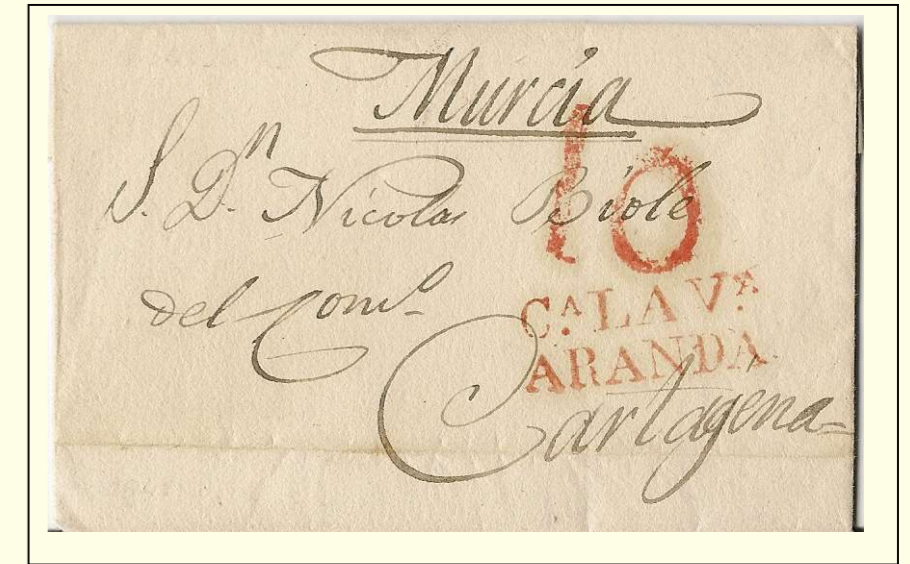 Murcia
10
S. Dⁿ. Nicolas Biole
del Comº
Cª LA Vª
ARANDA
Cartagena